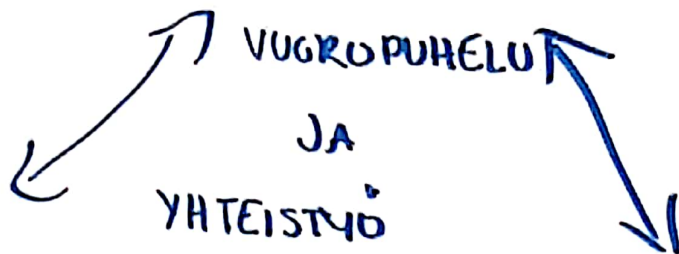 VUOROPUHELU
JA
YHTEISTYÖ